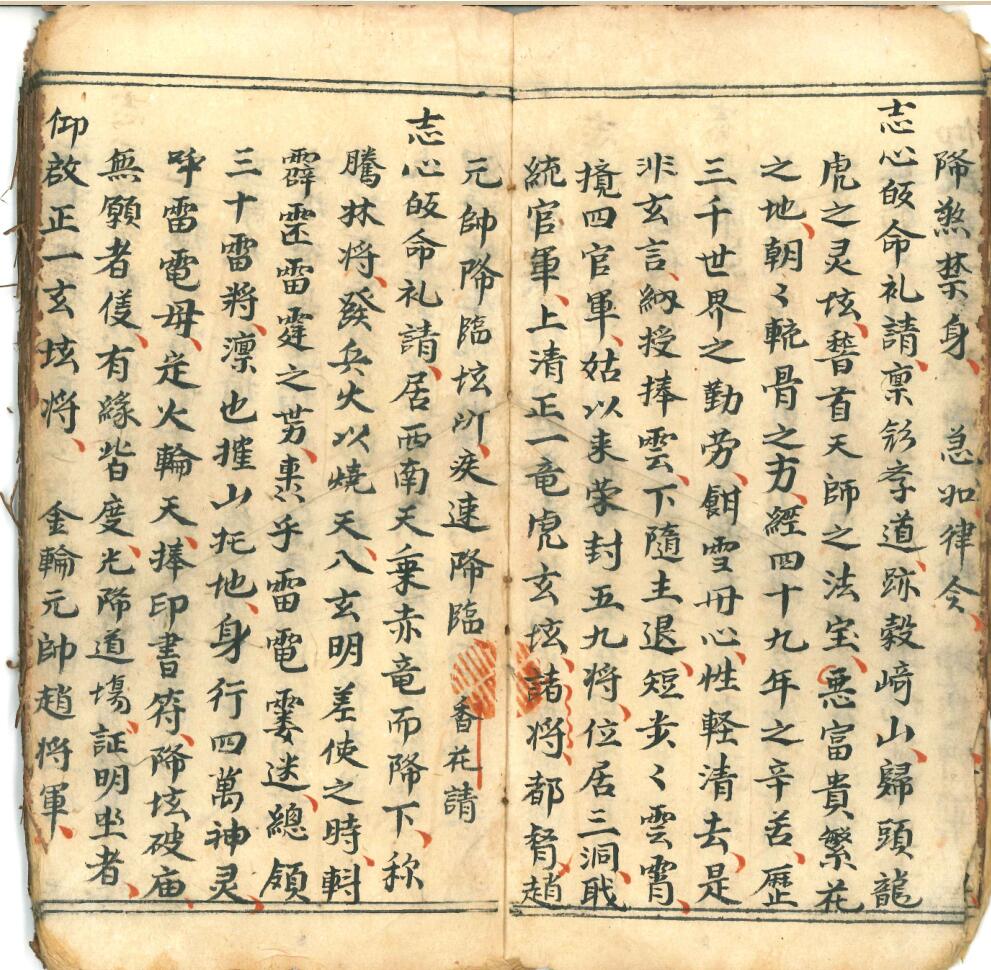 降煞禁身、急如律令、
志心皈命礼請、禀敎孝道、跡縠﨑山、歸頭龍
虎之灵垓、䭫首天師之法宝、悪富貴繁花
之地、朝〻輗骨之方、經四十九年之辛苦、歴
三千世界之勤劳、餌雪丹心、性軽清去、是
非玄言、納授捧雲、下隨主退、短步〻雲霄、
境四官軍、姑以来蒙封五九将、位居三洞戢
統官軍、上清正一竜虎玄垓、諸将、都督趙
元帥降臨垓所、疾速降臨 香花請
志心皈命礼請、居西南天乗赤竜而降下、称
騰林将、發兵火以燒天、八玄明差使之時、斟
霹雳雷霆之势、㶷乎雷電雾迷、總領
三十雷将、凛也摧山托地、身行四萬神灵、
呼雷電母、定火輪天、捧印書符、降垓破庙、
無願者俴、有緣皆度、允降道場、証明坐者、
仰啟正一玄垓将、 金輪元帥趙将軍、